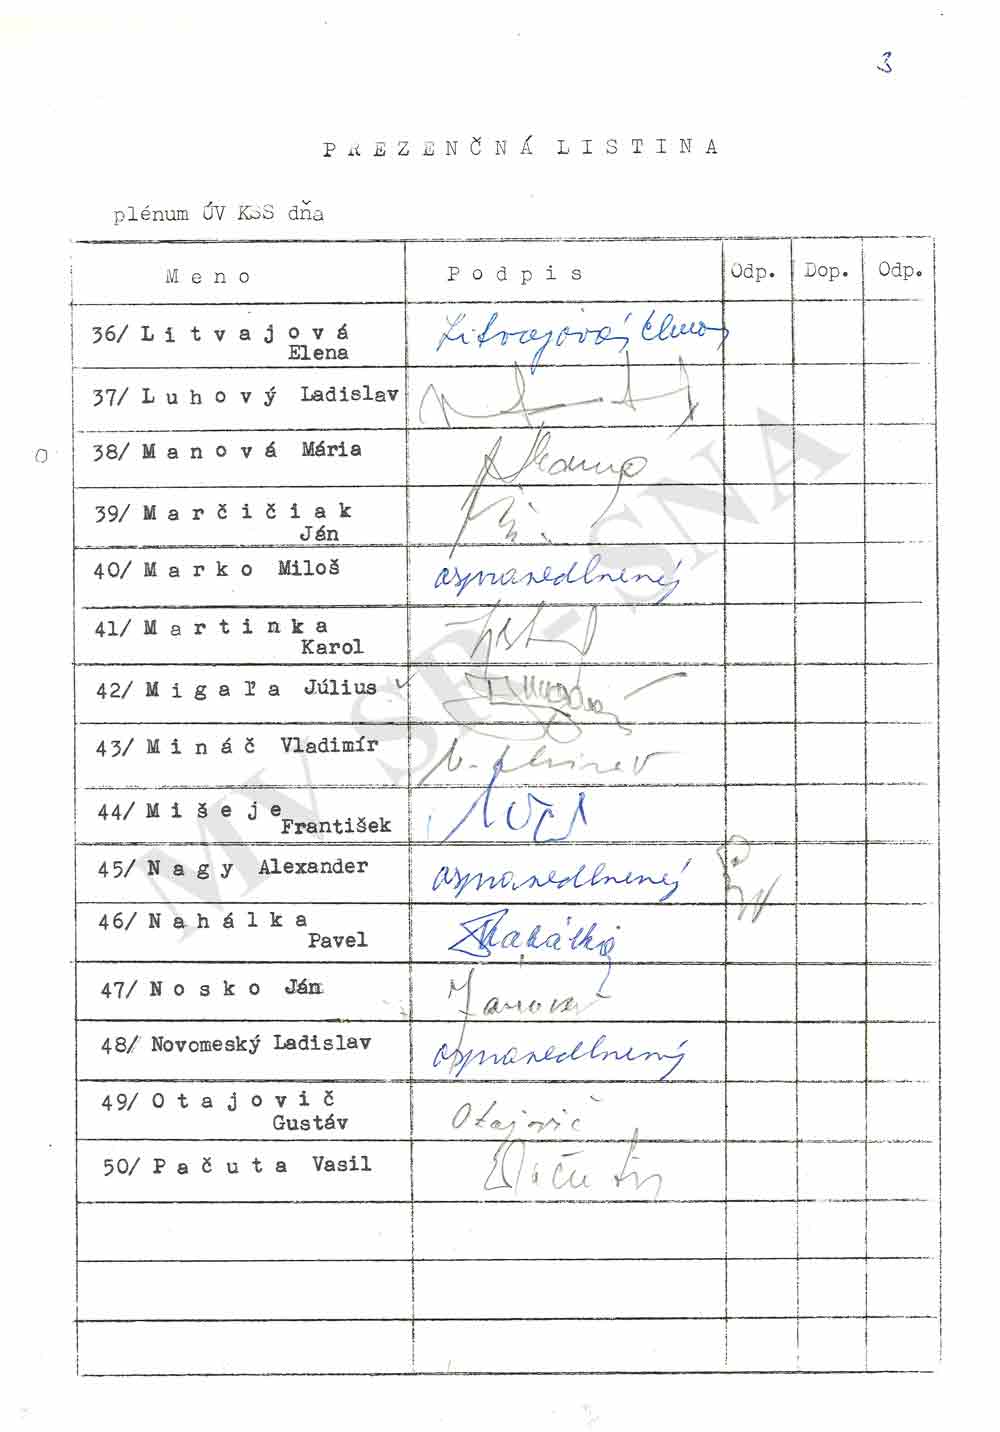 3
PREZENČNÁ LISTINA
plénum ÚV KSS dňa
Meno Podpis Odp. Dop. Odp.
36/ Litvajová Elena Litvajová Elena
37/ Luhový Ladislav
38/ Manová Mária Manová
39/ Marčičiak Ján
40/ Marko Miloš ospravedlnený
41/ Martinka Karol
42/ Migaľa Július
43/ Mináč Vladimír V. Mináč
44/ Mišeje František
45/ Nagy Alexander ospravedlnený
46/ Nahálka Pavel Nahálka
47/ Nosko Ján
48/ Novomeský Ladislav ospravedlnený
49/ Otajovič Gustáv Otajovič
50/ Pačuta Vasil Pačuta
MV SR - SNA